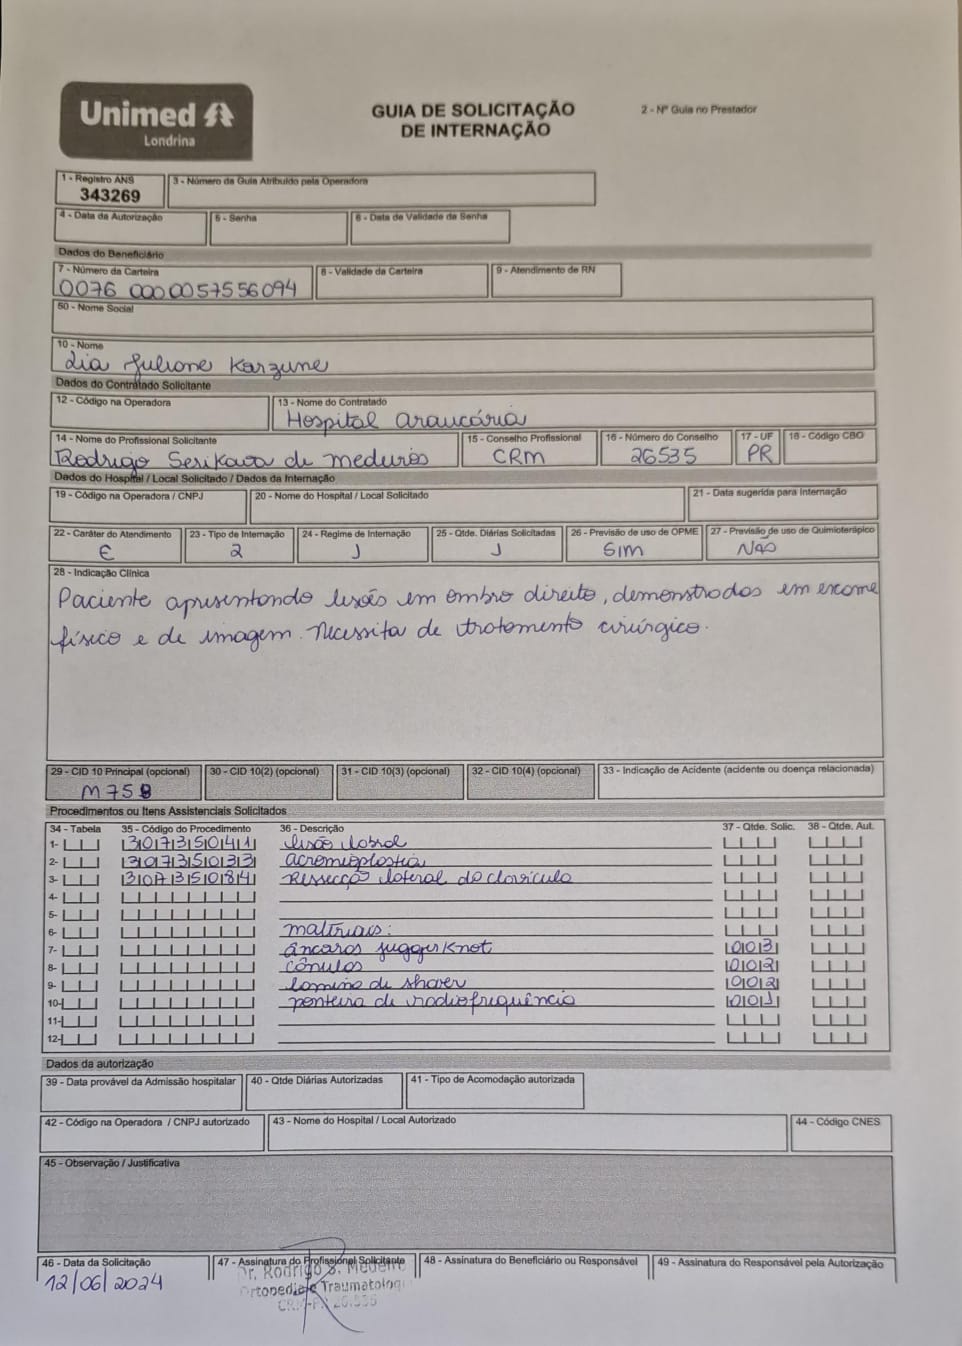 Unimed
Londrina
GUIA DE SOLICITAÇÃO
DE INTERNAÇÃO
2 - Nº Guia no Prestador
1 - Registro ANS
343269
3 - Número da Guia Atribuído pela Operadora
4 - Data da Autorização
5 - Senha
6 - Data de Validade da Senha
Dados do Beneficiário
7 - Número da Carteira
0076 0000057556094
8 - Validade da Carteira
9 - Atendimento de RN
50 - Nome Social
10 - Nome
Lia Juliane Karzune
Dados do Contratado Solicitante
12 - Código na Operadora
13 - Nome do Contratado
Hospital Araucária
14 - Nome do Profissional Solicitante
Rodrigo Serikawa de Medeiros
15 - Conselho Profissional
CRM
16 - Número do Conselho
26535
17 - UF
PR
18 - Código CBO
Dados do Hospital / Local Solicitado / Dados da Internação
19 - Código na Operadora / CNPJ
20 - Nome do Hospital / Local Solicitado
21 - Data sugerida para Internação
22 - Caráter do Atendimento
E
23 - Tipo de Internação
2
24 - Regime de Internação
1
25 - Qtde. Diárias Solicitadas
1
26 - Previsão de uso de OPME
SIM
27 - Previsão de uso de Quimioterápico
NÃO
28 - Indicação Clínica
Paciente apresentando lesões em ombro direito, demonstrados em exame
físico e de imagem. Necessita de tratamento cirúrgico.
29 - CID 10 Principal (opcional)
M758
30 - CID 10(2) (opcional)
31 - CID 10(3) (opcional)
32 - CID 10(4) (opcional)
33 - Indicação de Acidente (acidente ou doença relacionada)
Procedimentos ou Itens Assistenciais Solicitados
34 - Tabela 35 - Código do Procedimento 36 - Descrição 37 - Qtde. Solic. 38 - Qtde. Aut.
1- 30735041 lesão labral
2- 30735033 acromioplastia
3- 30735084 Ressecção lateral da clavícula
4-
5-
6- materiais:
7- âncoras juggerKnot 003
8- cânulas 002
9- lamina de shaver 002
10- ponteira de radiofrequência 001
11-
12-
Dados da autorização
39 - Data provável da Admissão hospitalar
40 - Qtde Diárias Autorizadas
41 - Tipo de Acomodação autorizada
42 - Código na Operadora / CNPJ autorizado
43 - Nome do Hospital / Local Autorizado
44 - Código CNES
45 - Observação / Justificativa
46 - Data da Solicitação
12/06/2024
47 - Assinatura do Profissional Solicitante
Dr. Rodrigo S. Medeir
Ortopedia e Traumatologi
48 - Assinatura do Beneficiário ou Responsável
49 - Assinatura do Responsável pela Autorização